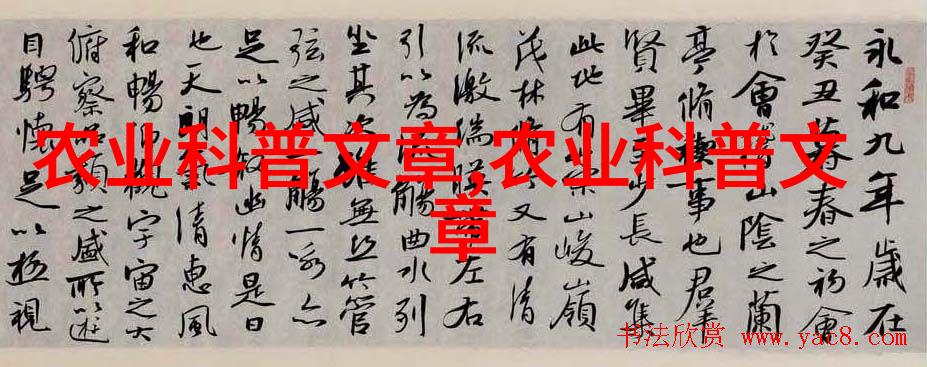 农业科普文章,农业科普文
章
永和九年歲在
癸丑暮春之初會
於會稽山陰之蘭
亭脩禊事也羣
賢畢至少長咸集
此地有崇山峻嶺
茂林脩竹又有清
流激湍暎帶左右
引以為流觴曲水列
坐其次雖無絲竹管
弦之盛一觴一詠亦
足以暢敘幽情是日
也天朗氣清惠風
和暢仰觀宇宙之大
俯察品類之盛所以遊
目騁懷足以極視
书法欣赏 www.yac8.com